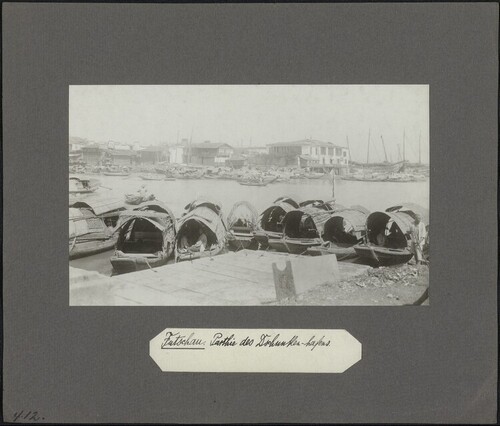 Futschau. Parthie des Dschunken-hafens
412.